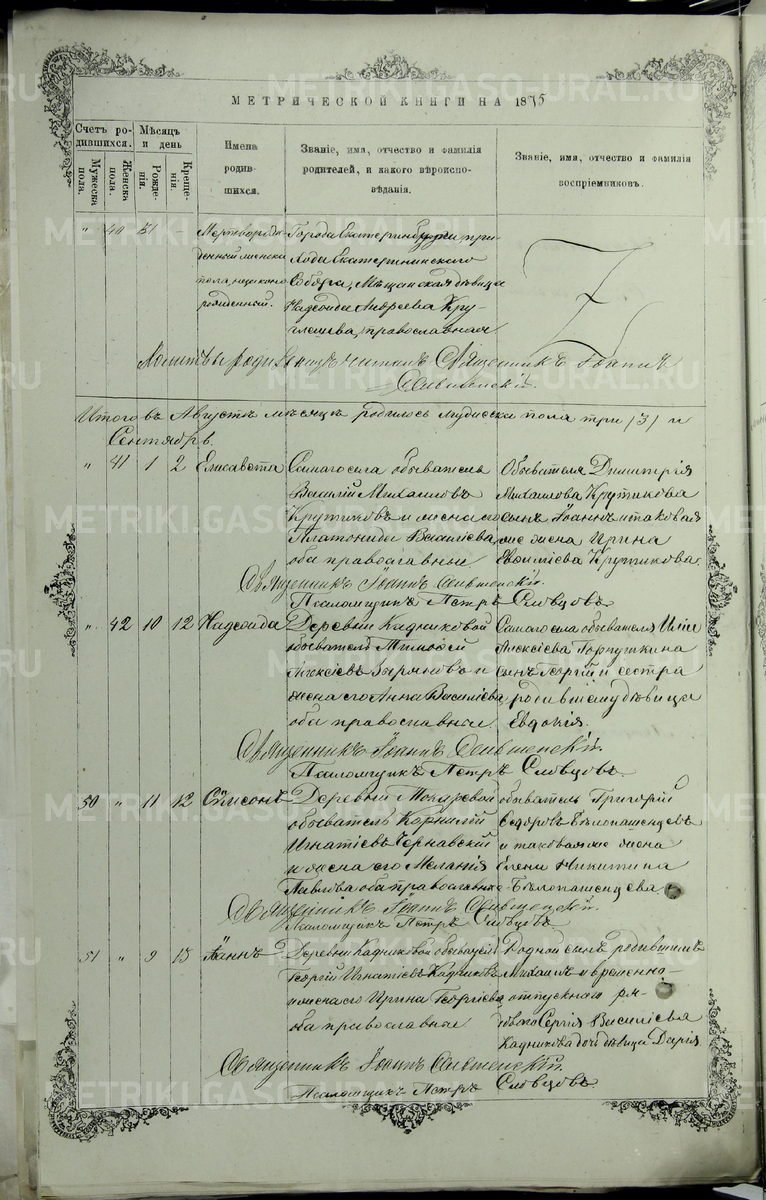 МЕТРИЧЕСКОЙ КНИГИ НА 1875
Счетъ ро-
дившихся.
Мужеска пола.
Женска пола.
Мѣсяцъ
и день
Рожде-
нія.
Креще-
нія.
Имена
родив-
шихся.
Званіе, имя, отчество и фамилія
родителей, и какого вѣроиспо-
вѣданія.
Званіе, имя, отчество и фамилія
воспріемниковъ.
" 40 31 -
Мертворож-
денный женска
пола, незаконно
рожденный.
Города Екатеринбурга, при-
хода Екатерининскаго
Собора, Мѣщанская дѣвица
Надежда Андреева Кру-
православная
Молитвы читалъ Священникъ Іоаннъ
Итого въ Августѣ мѣсяцѣ родилось мужеска пола три /3/ и
Сентябрь.
" 41 1 2 Елисавета
Самаго села обыватель
Василій Михаиловъ
Крутиковъ и жена его
Платонида Василіева,
оба православные
Обывателя Димитрія
Михаилова Крутикова
сынъ Іоаннъ и таковая
же жена Ирина
Евѳиміева Крутикова.
Священникъ Іоаннъ
Псаломщикъ Петръ Словцовъ.
" 42 10 12 Надежда
Деревни Кадниковой
обыватель
Алексіевъ Зыряновъ и
жена его Анна Василіева,
оба православные.
Самаго села обывателя
Алексіева Горнушкина
сынъ Георгій и сестра
родившему дѣвица
Евдокія.
Священникъ Іоаннъ
Псаломщикъ Петръ Словцовъ.
50 " 11 12 Симеонъ
Деревни Токаревой
обыватель Корнилій
Игнатіевъ Чернавский
и жена его Меланія
Павлова оба православные
обыватель Григорій
Ѳедоровъ Бѣлопашенцевъ
и таковая же жена
Елена Никитина
Бѣлопашенцева
Священникъ Іоаннъ
Псаломщикъ Петръ Словцовъ.
51 " 9 13 Іоаннъ
Деревни Кадниковой обыватель
Георгій Игнатіевъ Кадниковъ
и жена его Ирина Георгіева,
оба православные
Родной сынъ родившимъ
Михаилъ и временно-
отпускнаго ря-
доваго Сергія Василіева
Кадникова дочь дѣвица Дарія.
Священникъ Іоаннъ
Псаломщикъ Петръ Словцовъ.
METRIKI.GASO-URAL.RU